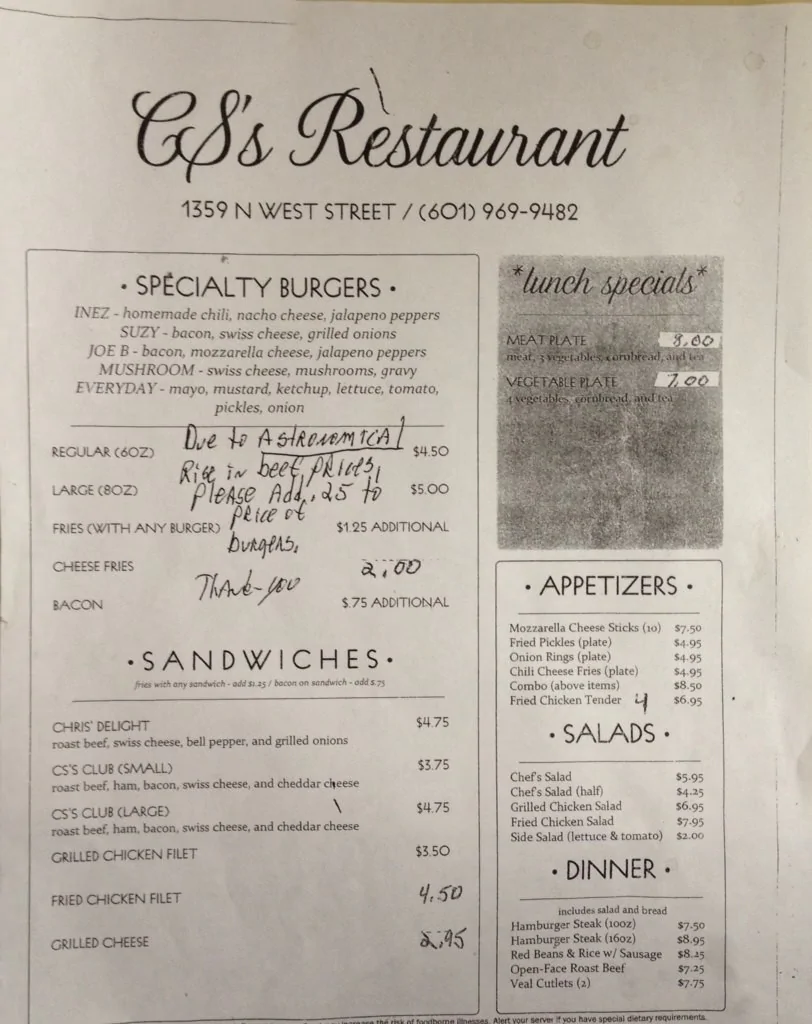 CS's Restaurant
1359 N WEST STREET / (601) 969-9482
· SPECIALTY BURGERS ·
INEZ - homemade chili, nacho cheese, jalapeno peppers
SUZY - bacon, swiss cheese, grilled onions
JOE B - bacon, mozzarella cheese, jalapeno peppers
MUSHROOM - swiss cheese, mushrooms, gravy
EVERYDAY - mayo, mustard, ketchup, lettuce, tomato,
pickles, onion
Due to ASTRONOMICAL
REGULAR (6OZ) $4.50
Rise in beef prices,
LARGE (8OZ) $5.00
Please Add .25 to
price of
FRIES (WITH ANY BURGER) $1.25 ADDITIONAL
burgers.
CHEESE FRIES 2.00
Thank-you
BACON $.75 ADDITIONAL
· SANDWICHES ·
fries with any sandwich - add $1.25 / bacon on sandwich - add $.75
CHRIS' DELIGHT $4.75
roast beef, swiss cheese, bell pepper, and grilled onions
CS'S CLUB (SMALL) $3.75
roast beef, ham, bacon, swiss cheese, and cheddar cheese
CS'S CLUB (LARGE) $4.75
roast beef, ham, bacon, swiss cheese, and cheddar cheese
GRILLED CHICKEN FILET $3.50
FRIED CHICKEN FILET 4.50
GRILLED CHEESE 2.95
*lunch specials*
MEAT PLATE 8.00
meat, 3 vegetables, cornbread, and tea
VEGETABLE PLATE 7.00
4 vegetables, cornbread, and tea
· APPETIZERS ·
Mozzarella Cheese Sticks (10) $7.50
Fried Pickles (plate) $4.95
Onion Rings (plate) $4.95
Chili Cheese Fries (plate) $4.95
Combo (above items) $8.50
Fried Chicken Tender 4 $6.95
· SALADS ·
Chef's Salad $5.95
Chef's Salad (half) $4.25
Grilled Chicken Salad $6.95
Fried Chicken Salad $7.95
Side Salad (lettuce & tomato) $2.00
· DINNER ·
includes salad and bread
Hamburger Steak (10oz) $7.50
Hamburger Steak (16oz) $8.95
Red Beans & Rice w/ Sausage $8.25
Open-Face Roast Beef $7.25
Veal Cutlets (2) $7.75
increase the risk of foodborne illnesses. Alert your server if you have special dietary requirements.